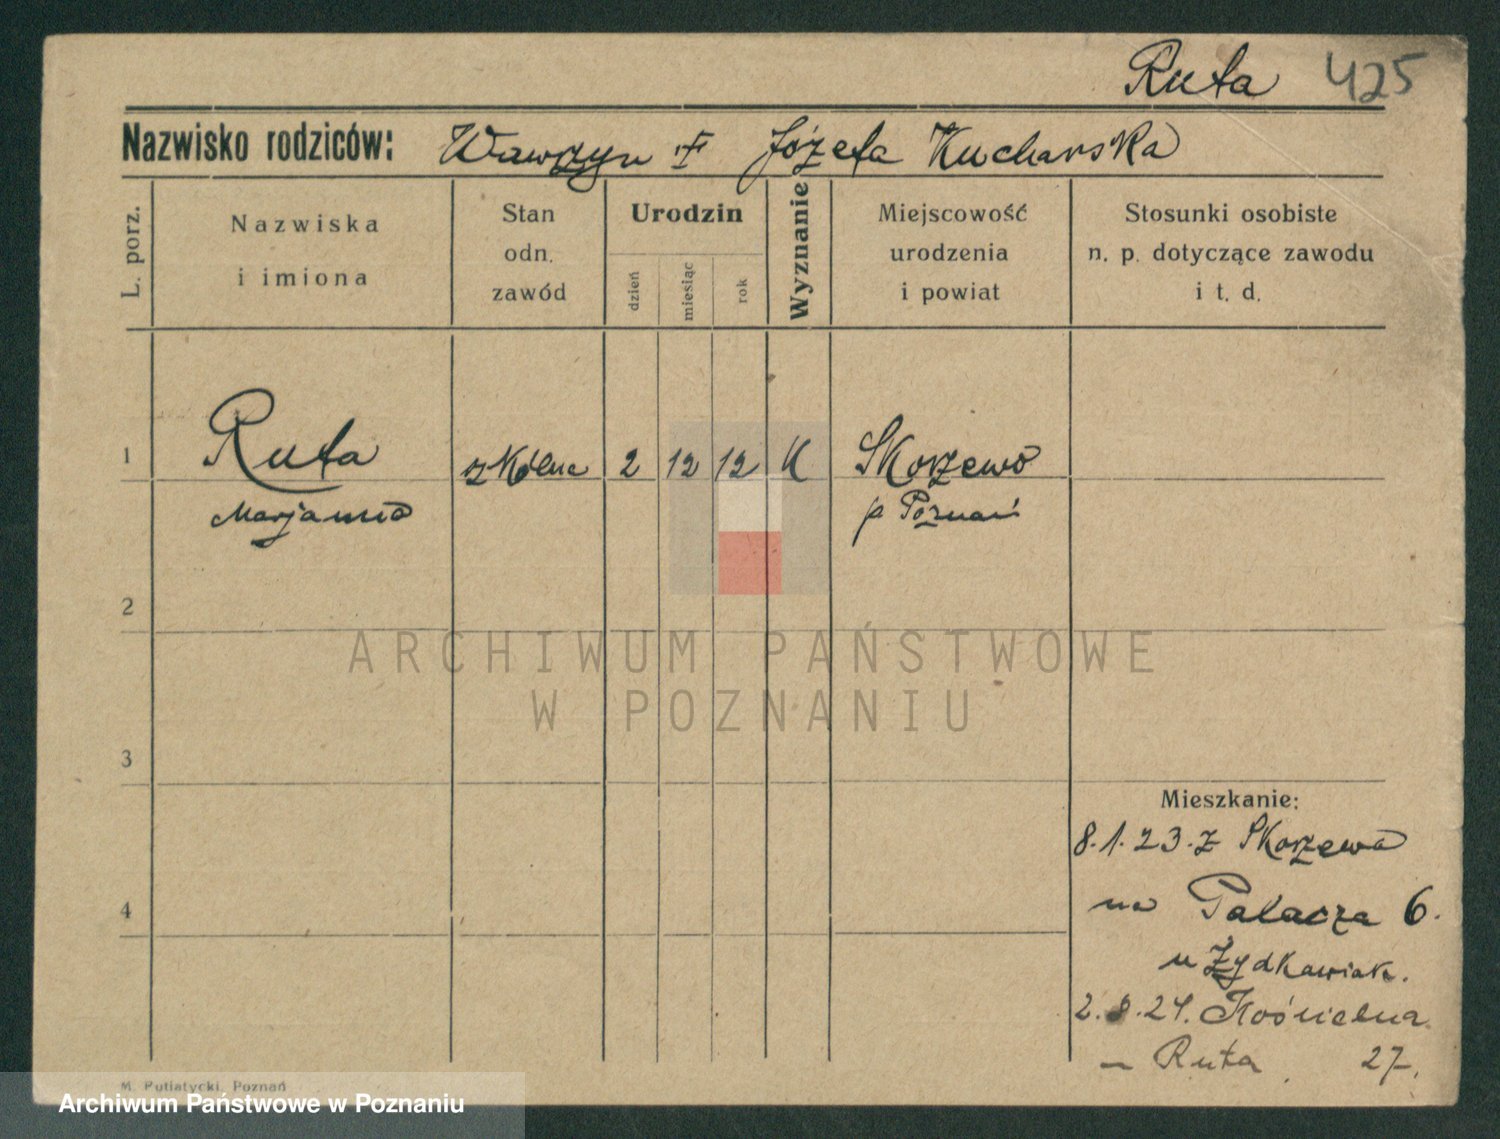 Ruta 425
Nazwisko rodziców: Wawrzyn i Józefa Kucharska
L. porz.
Nazwiska
i imiona
Stan
odn.
zawód
Urodzin
dzień
miesiąc
rok
Wyznanie
Miejscowość
urodzenia
i powiat
Stosunki osobiste
n. p. dotyczące zawodu
i t. d.
1 Ruta szkolna 2 12 12 K Skorzewo
Marjanna p Poznań
2
ARCHIWUM PAŃSTWOWE
W POZNANIU
3
Mieszkanie:
8.1.23. z Skorzewa
na Palacza 6.
4
u Żydkowiak.
2.8.24. Kościelna
– Ruta 27.
M. Putiatycki, Poznań
Archiwum Państwowe w Poznaniu